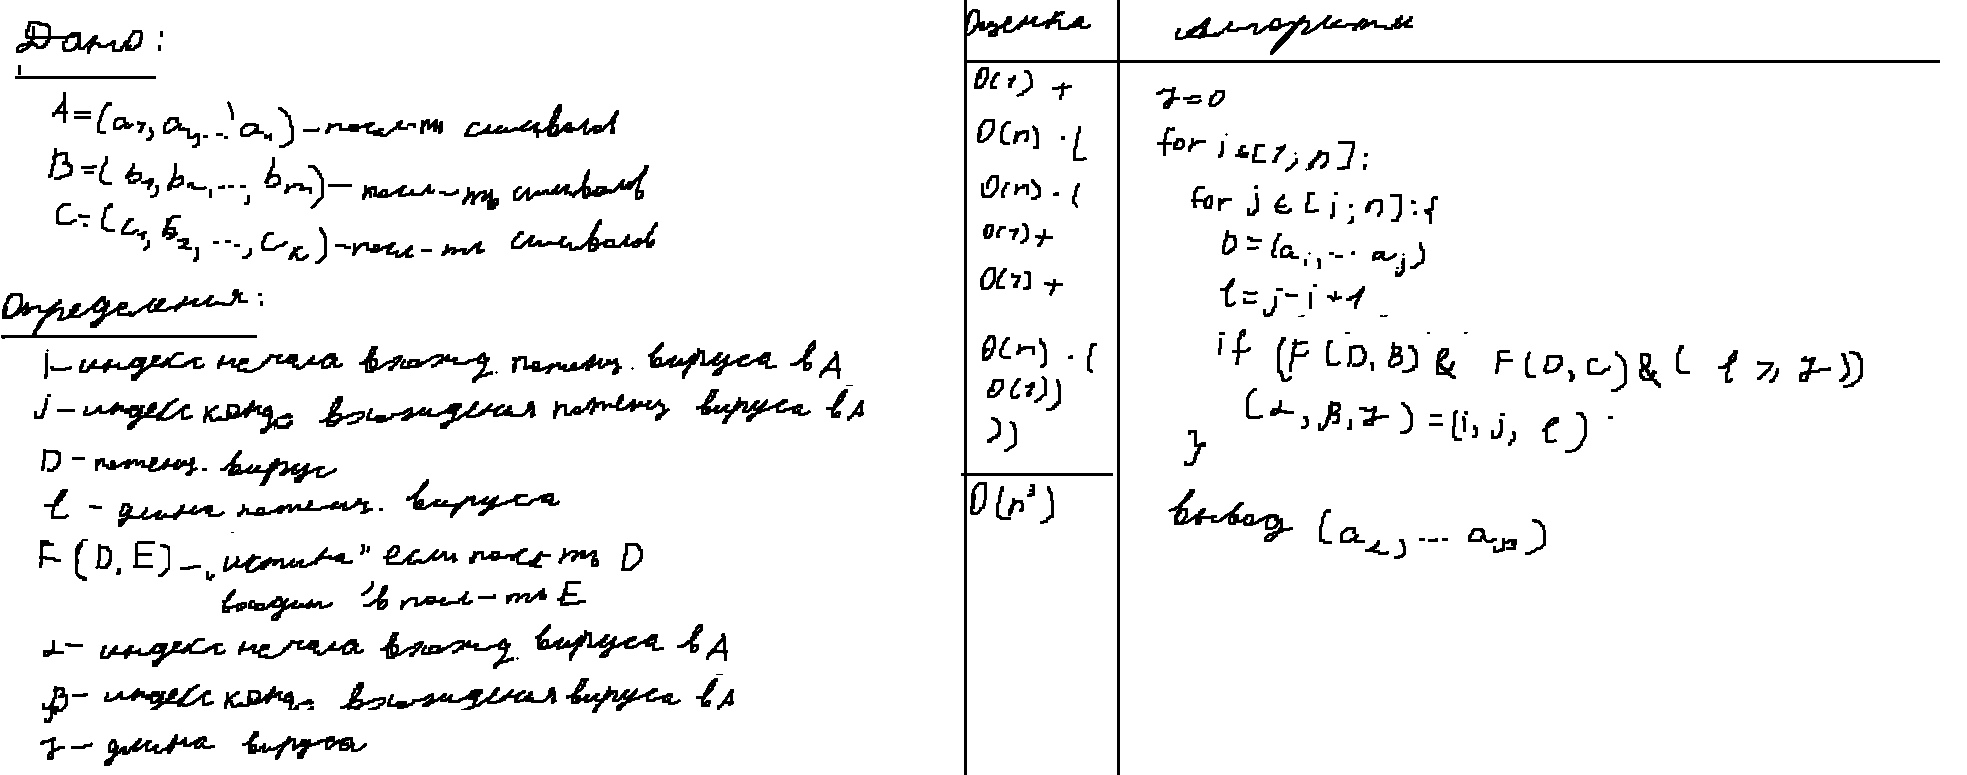 Дано:
A=(a₁, a₂, ... aₙ) – посл-ть символов
B=(b₁, b₂, ..., bₘ) – посл-ть символов
C=(c₁, б₂, ..., cₖ) – посл-ть символов
Определения:
i – индекс начала вхожд. потенц. вируса в A
j – индекс конц. вхождения потенц вируса в A
D – потенц. вирус
l – длина потенц. вируса
F(D, E) – „истина" если посл-ть D
входит в посл-ть E
α – индекс начала вхожд. вируса в A
β – индекс конц. вхождения вируса в A
γ – длина вируса
Оценка
O(1) +
O(n) · (
O(n) · (
O(1) +
O(1) +
O(n) · (
O(1))
))
O(n³)
Алгоритм
γ=0
for i ∈ [1; n]:
for j ∈ [i; n]:{
D = (aᵢ, ... aⱼ)
l = j - i + 1
if (F(D, B) & F(D, C) & ( l ⩾ γ ))
(α, β, γ) = (i, j, l)
}
вывод (a_α, ... a_β)